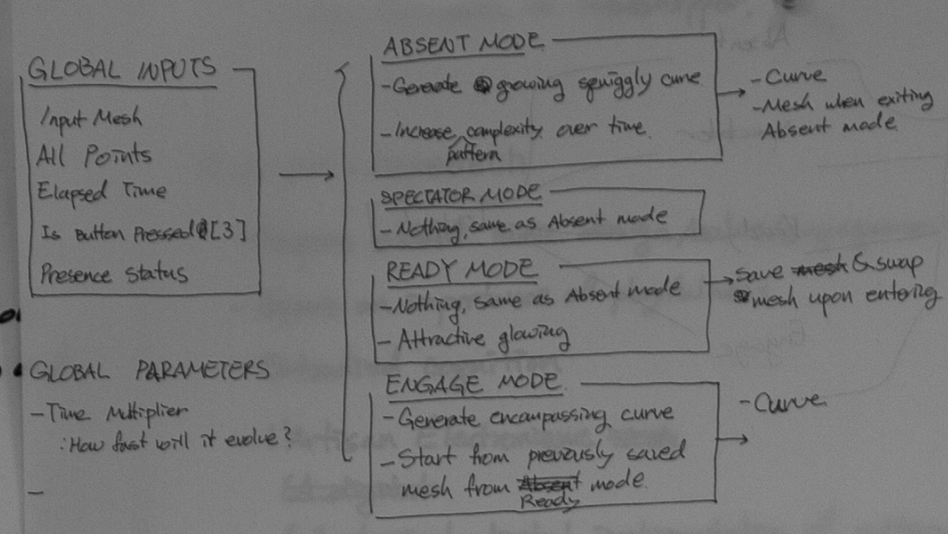 GLOBAL INPUTS
Input Mesh
All Points
Elapsed Time
Is Button Pressed [3]
Presence Status
GLOBAL PARAMETERS
- Time Multiplier
: How fast will it evolve?
-
ABSENT MODE
- Generate growing squiggly curve
- Increase complexity over time.
pattern
- Curve
- Mesh when exiting
Absent mode
SPECTATOR MODE
- Nothing, same as Absent mode
READY MODE
- Nothing, same as Absent mode
- Attractive glowing
save mesh & swap
mesh upon entering
ENGAGE MODE.
- Generate encompassing curve
- Start from previously saved
mesh from Absent mode.
Ready
- Curve